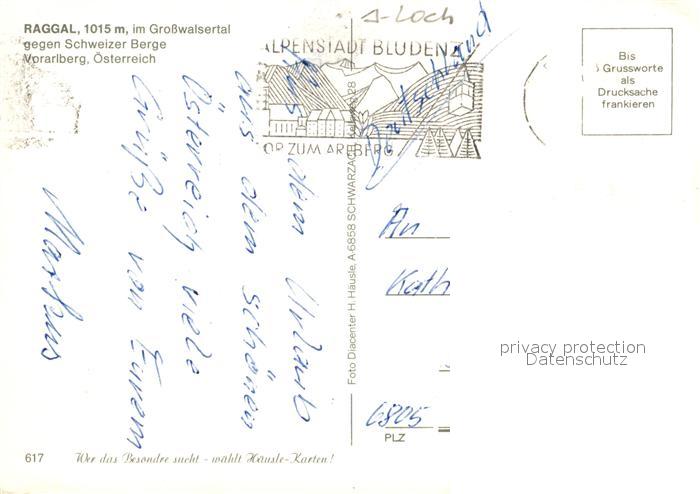 RAGGAL, 1015 m, im Großwalsertal
gegen Schweizer Berge
Vorarlberg, Österreich
A-Loch
ALPENSTADT BLUDENZ
TOR ZUM ARLBERG
Deutschland
Bis
5 Grussworte
als
Drucksache
frankieren
Aus dem Urlaub
aus dem schönen
Österreich viele
Grüße von Eurem
Markus
Foto Diacenter H. Häusle, A 6858 SCHWARZACH
28
An
Kath
6805
PLZ
privacy protection
Datenschutz
617
Wer das Besondre sucht - wählt Häusle-Karten!